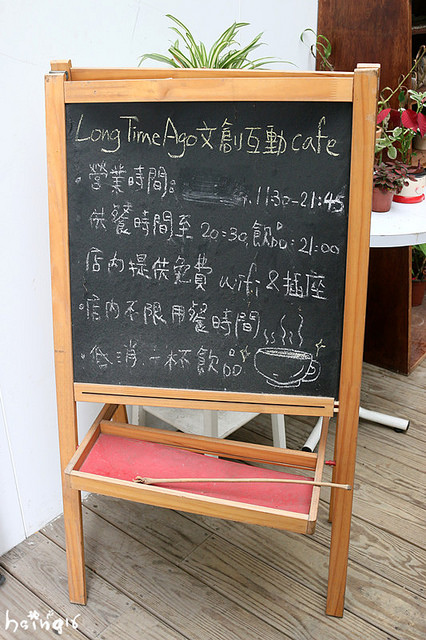 Long Time Ago 文創互動 cafe
·營業時間: 11:30-21:45
供餐時間至 20:30, 飲品:21:00
店內提供免費 wifi & 插座
·店內不限用餐時間
·低消一杯飲品
haing16